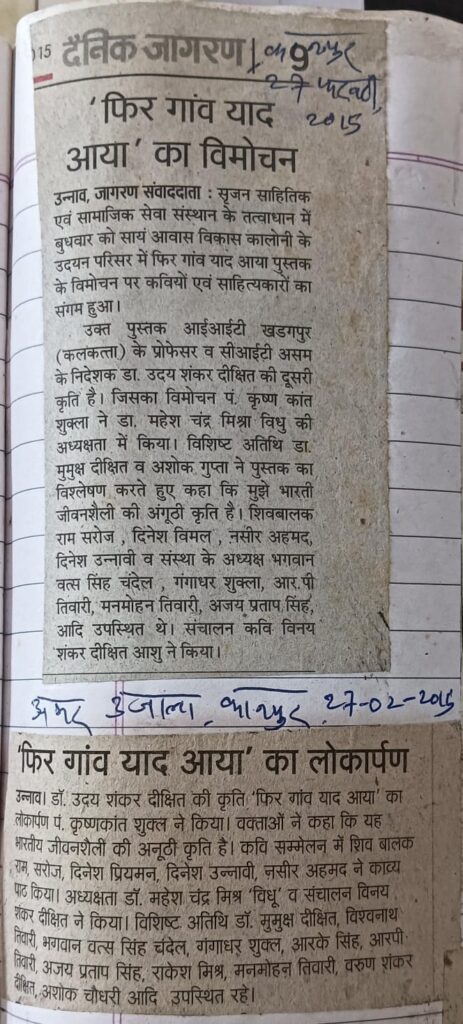 015 दैनिक जागरण कानपुर 9
27 फरवरी,
2015
'फिर गांव याद
आया' का विमोचन
उन्नाव, जागरण संवाददाता : सृजन साहितिक
एवं सामाजिक सेवा संस्थान के तत्वाधान में
बुधवार को सायं आवास विकास कालोनी के
उदयन परिसर में फिर गांव याद आया पुस्तक
के विमोचन पर कवियों एवं साहित्यकारों का
संगम हुआ।
उक्त पुस्तक आईआईटी खडगपुर
(कलकत्ता) के प्रोफेसर व सीआईटी असम
के निदेशक डा. उदय शंकर दीक्षित की दूसरी
कृति है। जिसका विमोचन पं. कृष्ण कांत
शुक्ला ने डा. महेश चंद्र मिश्रा विधु की
अध्यक्षता में किया। विशिष्ट अतिथि डा.
मुमुक्ष दीक्षित व अशोक गुप्ता ने पुस्तक का
विश्लेषण करते हुए कहा कि मुझे भारती
जीवनशैली की अंगूठी कृति है। शिवबालक
राम सरोज , दिनेश विमल , नसीर अहमद,
दिनेश उन्नावी व संस्था के अध्यक्ष भगवान
वत्स सिंह चंदेल , गंगाधर शुक्ला, आर.पी
तिवारी, मनमोहन तिवारी, अजय प्रताप सिंह,
आदि उपस्थित थे। संचालन कवि विनय
शंकर दीक्षित आशु ने किया।
अमर उजाला, कानपुर, 27-02-2015
'फिर गांव याद आया' का लोकार्पण
उन्नाव। डॉ. उदय शंकर दीक्षित की कृति 'फिर गांव याद आया' का
लोकार्पण पं. कृष्णकांत शुक्ल ने किया। वक्ताओं ने कहा कि यह
भारतीय जीवनशैली की अनूठी कृति है। कवि सम्मेलन में शिव बालक
राम, सरोज, दिनेश प्रियमन, दिनेश उन्नावी, नसीर अहमद ने काव्य
पाठ किया। अध्यक्षता डॉ. महेश चंद्र मिश्र 'विधु' व संचालन विनय
शंकर दीक्षित ने किया। विशिष्ट अतिथि डॉ. मुमुक्ष दीक्षित, विश्वनाथ
तिवारी, भगवान वत्स सिंह चंदेल, गंगाधर शुक्ल, आरके सिंह, आरपी
तिवारी, अजय प्रताप सिंह, राकेश मिश्र, मनमोहन तिवारी, वरुण शंकर
दीक्षित, अशोक चौधरी आदि उपस्थित रहे।